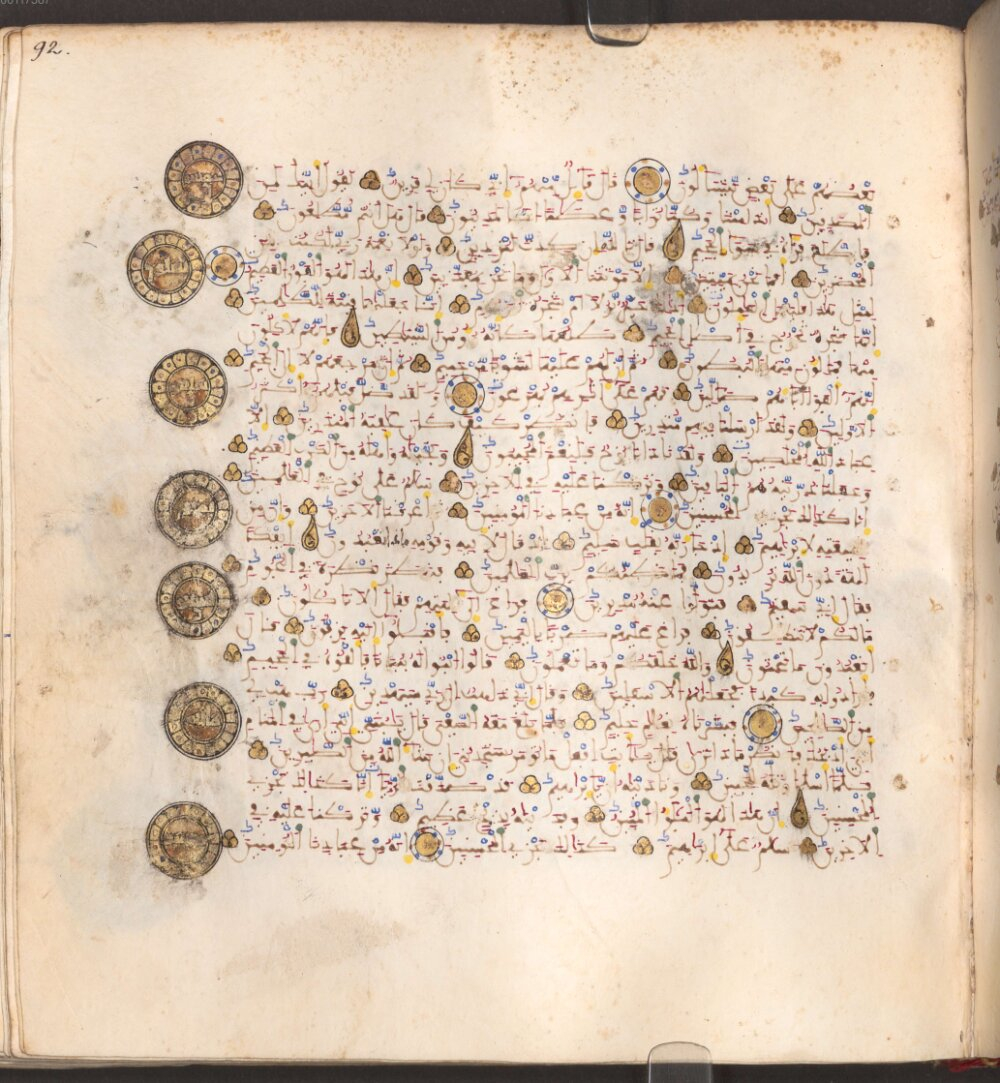 92.
بعضهم على بعض يتساءلون قال قائل منهم إني كان لي قرين يقول أإنك لمن
المصدقين أإذا متنا وكنا ترابا وعظاما إنا لمدينون قال هل أنتم مطلعون
فاطلع فرءاه في سواء الجحيم قال تالله إن كدت لتردين ولولا نعمة ربي لكنت من
المحضرين أفما نحن بميتين إلا موتتنا الأولى وما نحن بمعذبين إن هذا لهو الفوز العظيم
لمثل هذا فليعمل العملون أذلك خير نزلا أم شجرة الزقوم إنا جعلنها فتنة للظلمين
إنها شجرة تخرج في أصل الجحيم طلعها كأنه رءوس الشيطين فإنهم لأكلون
منها فمالئون منها البطون ثم إن لهم عليها لشوبا من حميم ثم إن مرجعهم لإلى الجحيم
إنهم ألفوا اباءهم ضالين فهم على اثرهم يهرعون ولقد ضل قبلهم أكثر
الأولين ولقد أرسلنا فيهم منذرين فانظر كيف كان عقبة المنذرين إلا
عباد الله المخلصين ولقد نادينا نوح فلنعم المجيبون ونجينه وأهله من الكرب العظيم
وجعلنا ذريته هم الباقين وتركنا عليه في الأخرين سلم على نوح في العلمين
إنا كذلك نجزي المحسنين إنه من عبادنا المؤمنين ثم أغرقنا الأخرين وإن من
شيعته لإبرهيم إذ جاء ربه بقلب سليم إذ قال لأبيه وقومه ماذا تعبدون أئفكا
الهة دون الله تريدون فما ظنكم برب العلمين فنظر نظرة في النجوم
فقال إني سقيم فتولوا عنه مدبرين فراغ إلى الهتهم فقال ألا تأكلون
ما لكم لا تنطقون فراغ عليهم ضربا باليمين فأقبلوا إليه يزفون قال
أتعبدون ما تنحتون والله خلقكم وما تعملون قالوا ابنوا له بنينا فألقوه في الجحيم
فأرادوا به كيدا فجعلنهم الأسفلين وقال إني ذاهب إلى ربي سيهدين رب هب لي
من الصلحين فبشرنه بغلم حليم فلما بلغ معه السعي قال يبني إني أرى في المنام
أني أذبحك فانظر ماذا ترى قال يأبت افعل ما تؤمر ستجدني إن شاء الله من الصبرين
فلما أسلما وتله للجبين وندينه أن يإبرهيم قد صدقت الرءيا إنا كذلك نجزي
المحسنين إن هذا لهو البلؤا المبين وفدينه بذبح عظيم وتركنا عليه في
الأخرين سلم على إبرهيم كذلك نجزي المحسنين إنه من عبادنا المؤمنين